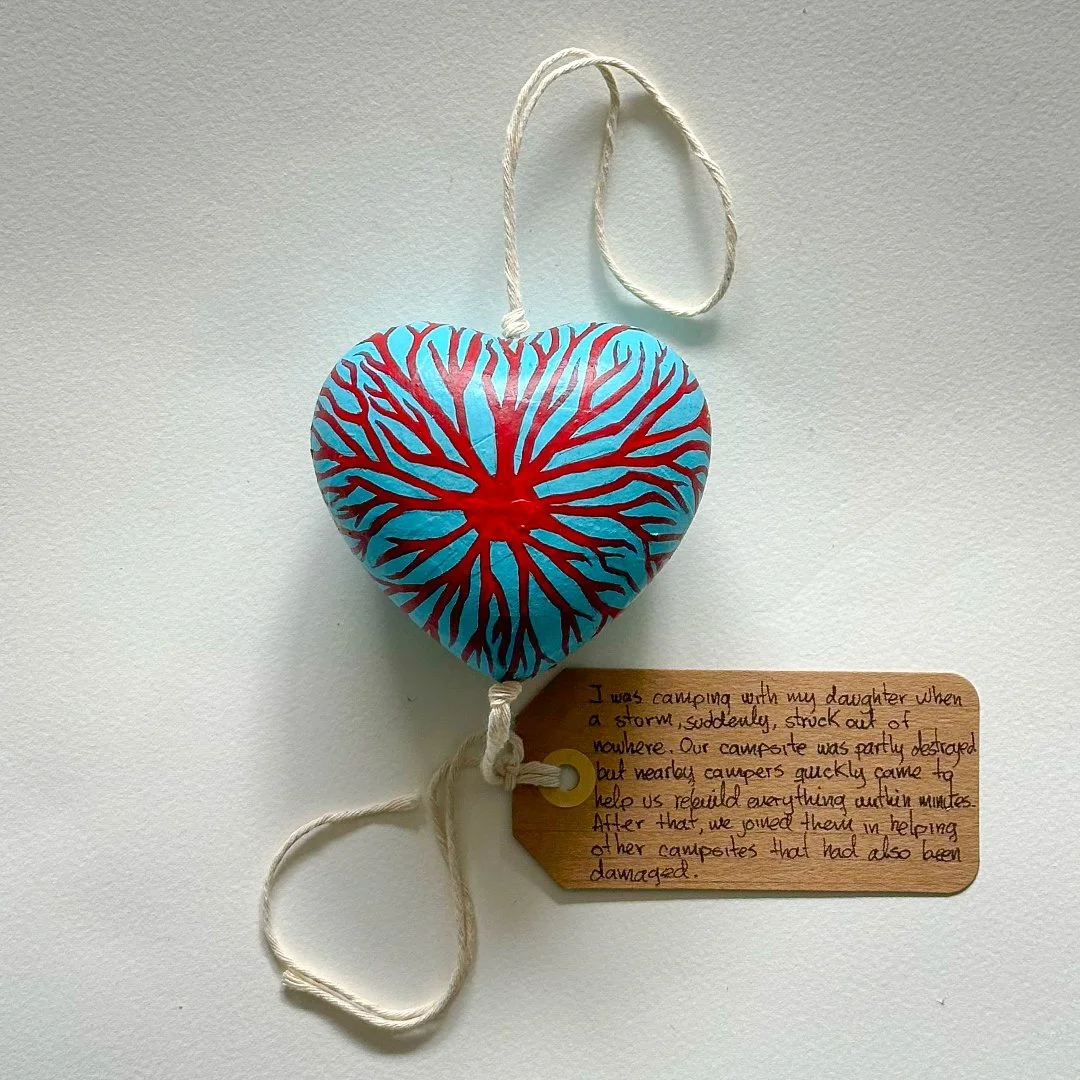 I was camping with my daughter when
a storm, suddenly, struck out of
nowhere. Our campsite was partly destroyed
but nearby campers quickly came to
help us rebuild everything within minutes.
After that, we joined them in helping
other campsites that had also been
damaged.